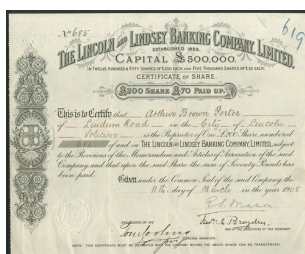 No 688
619
THE LINCOLN AND LINDSEY BANKING COMPANY, LIMITED.
ESTABLISHED 1833.
CAPITAL £500,000.
IN TWELVE HUNDRED & FIFTY SHARES OF £200 EACH AND FIVE THOUSAND SHARES OF £50 EACH.
CERTIFICATE OF SHARE.
£200 SHARE £70 PAID UP.
This is to Certify that Arthur Brown Porter
of Lindum Road in the City of Lincoln
Solicitor is the Proprietor of One £200 Share, numbered
of and in THE LINCOLN AND LINDSEY BANKING COMPANY, LIMITED, subject
to the Provisions of the Memorandum and Articles of Association of the said
Company and that upon the said Share the sum of Seventy Pounds has
been paid.
Given under the Common Seal of the said Company the
11th day of March in the year 1908
REGISTERED BY
GENERAL MANAGER.
NOTE: THIS CERTIFICATE MUST BE DEPOSITED WITH THE COMPANY BEFORE THE ABOVE SHARE CAN BE TRANSFERRED.